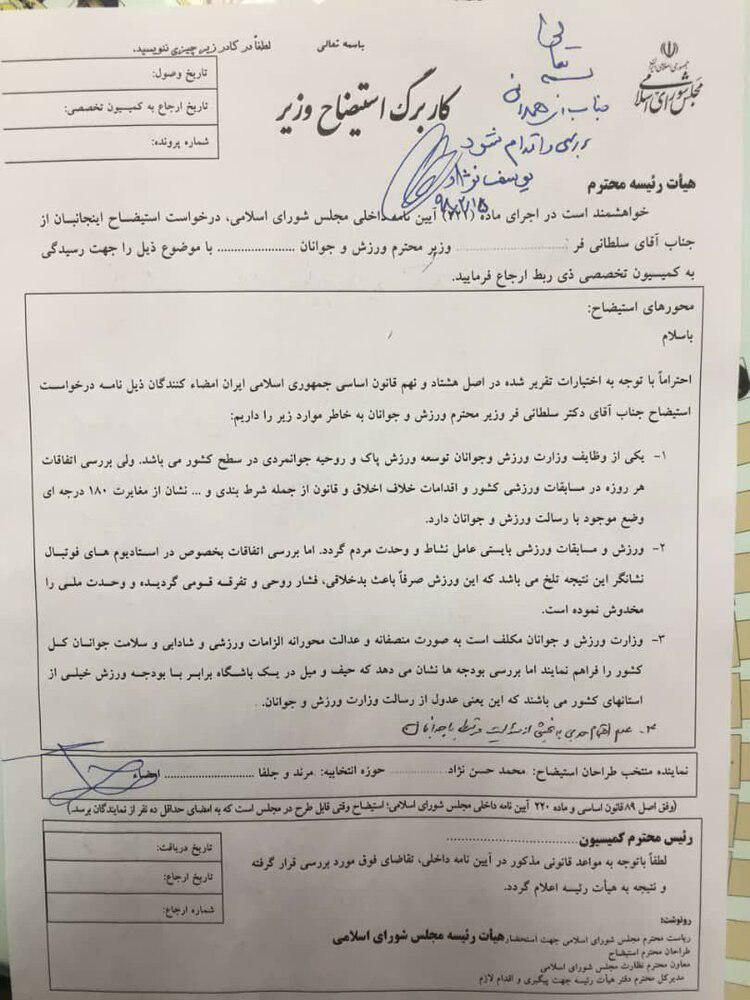 باسمه تعالی
لطفاً در کادر زیر چیزی ننویسید.
جمهوری اسلامی ایران
مجلس شورای اسلامی
کاربرگ استیضاح وزیر
تاریخ وصول:
تاریخ ارجاع به کمیسیون تخصصی:
شماره پرونده:
بسمه تعالی
جناب
بررسی و اقدام شود
یوسف نژاد
۹۸/۲/۱۵
هیأت رئیسه محترم
خواهشمند است در اجرای ماده (۲۲۱) آیین نامه داخلی مجلس شورای اسلامی، درخواست استیضاح اینجانبان از
جناب آقای سلطانی فر .......................... وزیر محترم ورزش و جوانان .................. با موضوع ذیل را جهت رسیدگی
به کمیسیون تخصصی ذی ربط ارجاع فرمایید.
محورهای استیضاح:
باسلام
احتراماً با توجه به اختیارات تقریر شده در اصل هشتاد و نهم قانون اساسی جمهوری اسلامی ایران امضاء کنندگان ذیل نامه درخواست
استیضاح جناب آقای دکتر سلطانی فر وزیر محترم ورزش و جوانان به خاطر موارد زیر را داریم:
۱- یکی از وظایف وزارت ورزش وجوانان توسعه ورزش پاک و روحیه جوانمردی در سطح کشور می باشد. ولی بررسی اتفاقات
هر روزه در مسابقات ورزشی کشور و اقدامات خلاف اخلاق و قانون از جمله شرط بندی و ... نشان از مغایرت ۱۸۰ درجه ای
وضع موجود با رسالت ورزش و جوانان دارد.
۲- ورزش و مسابقات ورزشی بایستی عامل نشاط و وحدت مردم گردد. اما بررسی اتفاقات بخصوص در استادیوم های فوتبال
نشانگر این نتیجه تلخ می باشد که این ورزش صرفاً باعث بدخلاقی، فشار روحی و تفرقه قومی گردیده و وحدت ملی را
مخدوش نموده است.
۳- وزارت ورزش و جوانان مکلف است به صورت منصفانه و عدالت محورانه الزامات ورزشی و شادابی و سلامت جوانان کل
کشور را فراهم نمایند اما بررسی بودجه ها نشان می دهد که حیف و میل در یک باشگاه برابر با بودجه ورزش خیلی از
استانهای کشور می باشند که این یعنی عدول از رسالت وزارت ورزش و جوانان.
۴- عدم اهتمام جدی به بخشی از رسالت مرتبط با جوانان
نماینده منتخب طراحان استیضاح: محمد حسن نژاد .............. حوزه انتخابیه: مرند و جلفا ...................... امضاء
(وفق اصل ۸۹ قانون اساسی و ماده ۲۲۰ آیین نامه داخلی مجلس شورای اسلامی؛ استیضاح وقتی قابل طرح در مجلس است که به امضای حداقل ده نفر از نمایندگان برسد.)
رئیس محترم کمیسیون..................................
لطفاً باتوجه به مواعد قانونی مذکور در آیین نامه داخلی، تقاضای فوق مورد بررسی قرار گرفته
و نتیجه به هیأت رئیسه اعلام گردد.
تاریخ دریافت:
تاریخ ارجاع:
شماره ارجاع:
هیأت رئیسه مجلس شورای اسلامی
رونوشت:
ریاست محترم مجلس شورای اسلامی جهت استحضار
طراحان محترم استیضاح
معاون محترم نظارت مجلس شورای اسلامی
مدیرکل محترم دفتر هیأت رئیسه جهت پیگیری و اقدام لازم